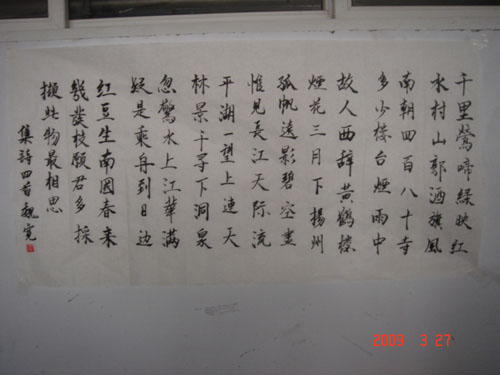 千里鶯啼緑映紅
水村山郭酒旗風
南朝四百八十寺
多少楼台煙雨中
故人西辞黄鶴楼
煙花三月下揚州
孤帆遠影碧空盡
惟見長江天际流
平湖一望上連天
林景千尋下洞泉
忽驚水上江華滿
疑是乘舟到日边
红豆生南國春来
幾發枝願君多採
擷此物最相思
集詩四首魏寬
2009 3 27